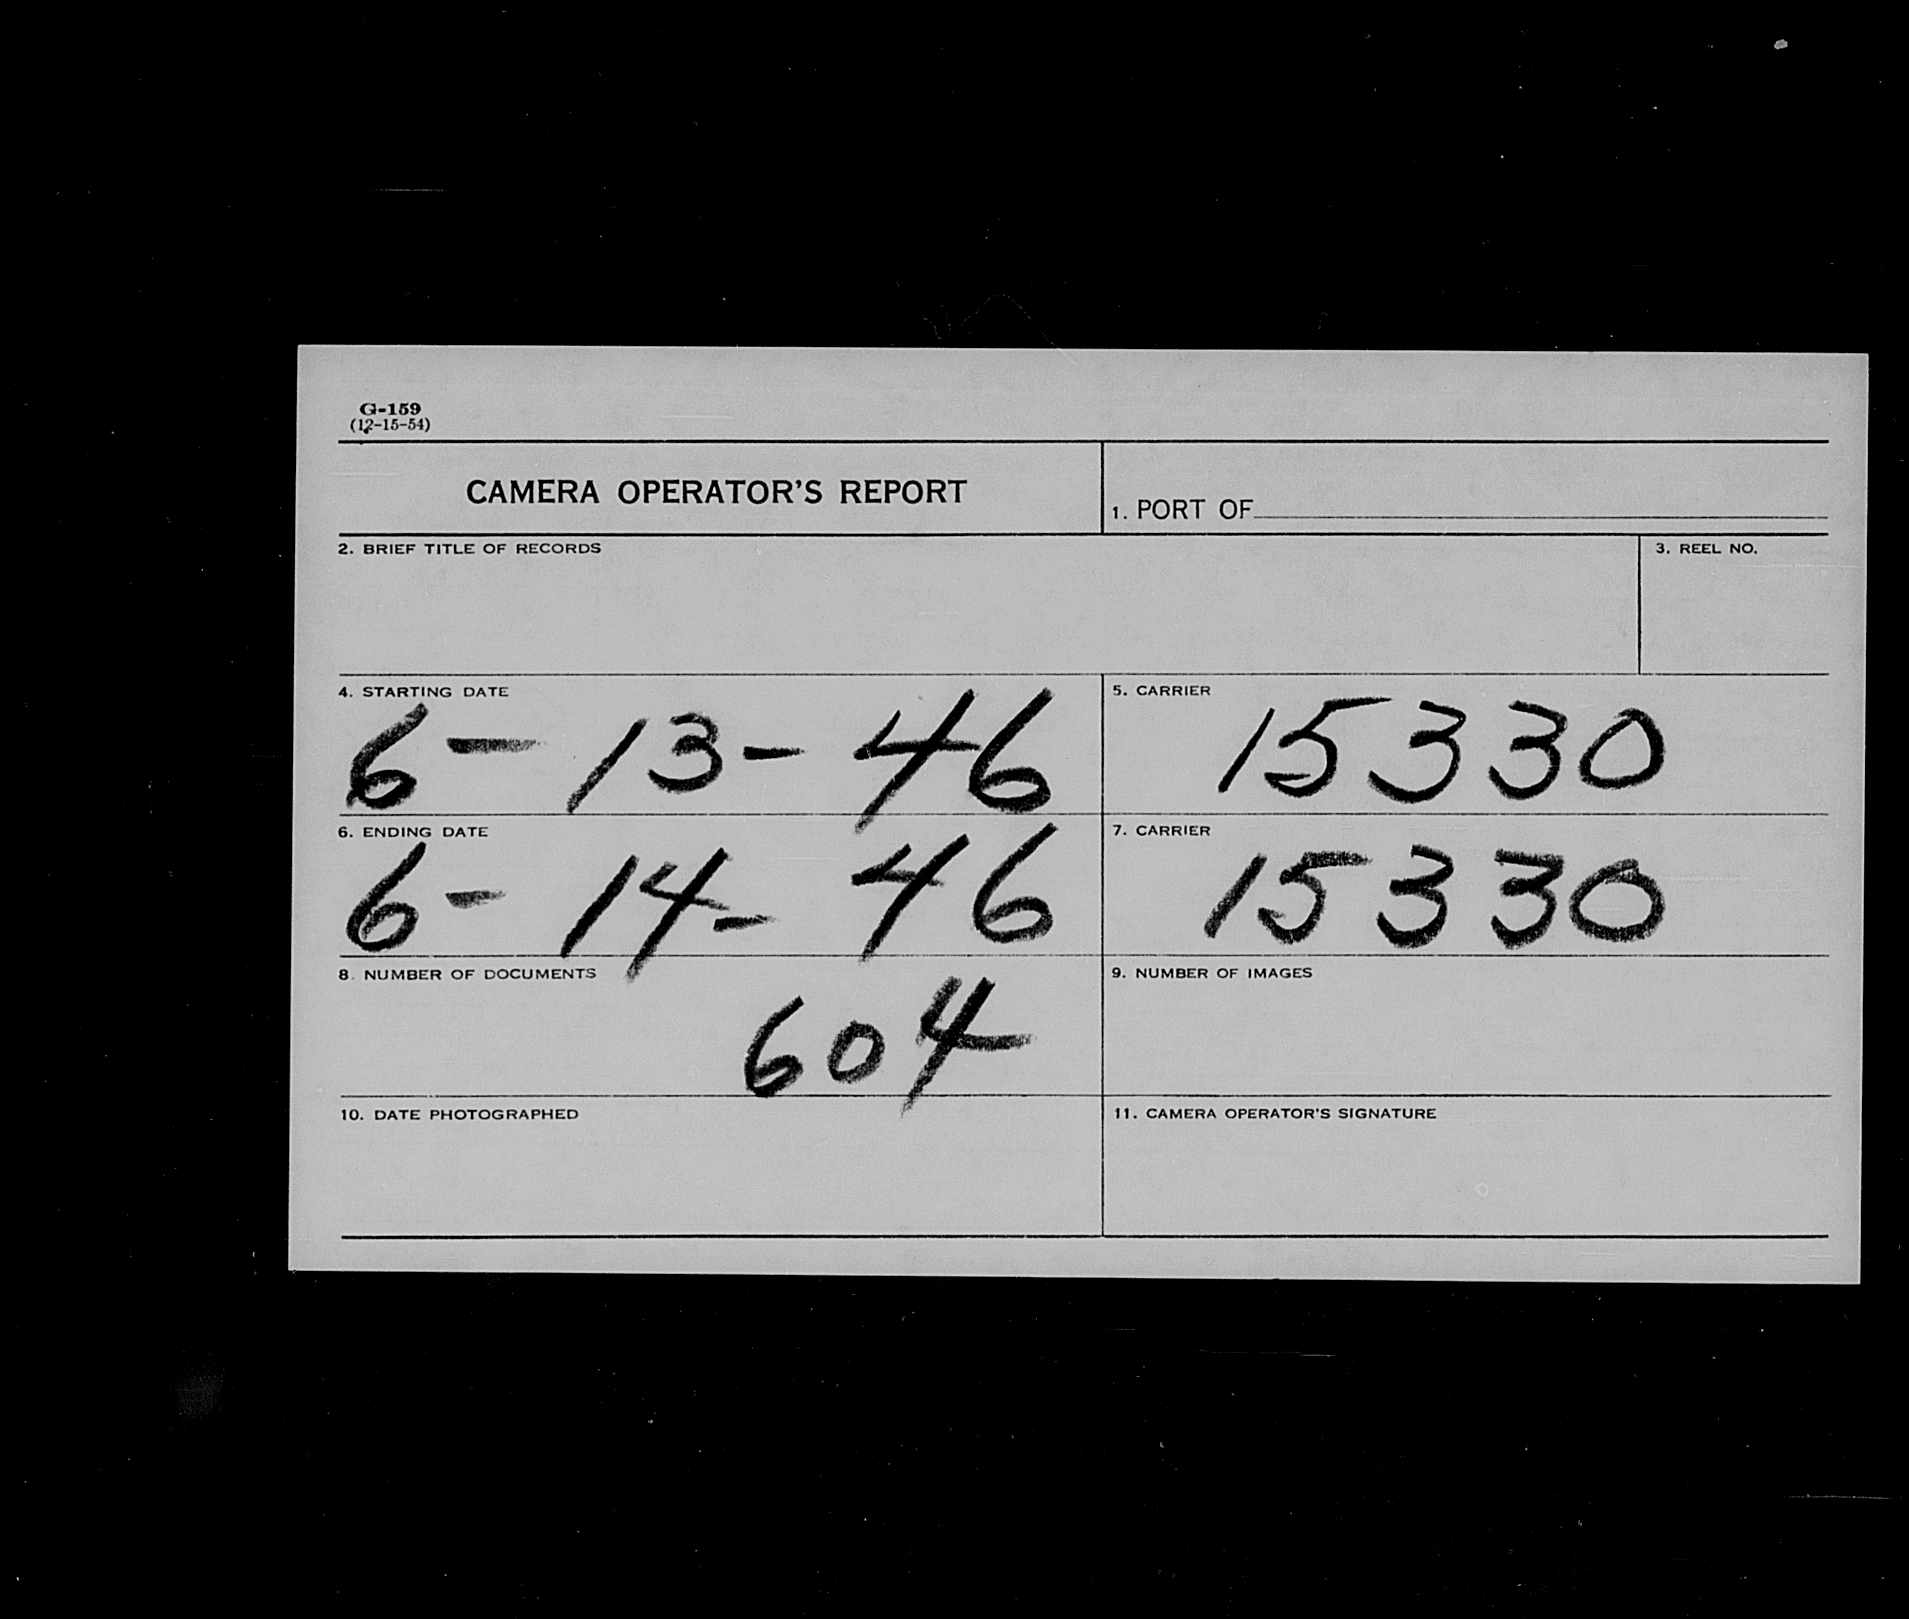 G-159
(12-15-54)
CAMERA OPERATOR'S REPORT
1. PORT OF
2. BRIEF TITLE OF RECORDS
3. REEL NO.
4. STARTING DATE
6-13-46
5. CARRIER
15330
6. ENDING DATE
6-14-46
7. CARRIER
15330
8. NUMBER OF DOCUMENTS
604
9. NUMBER OF IMAGES
10. DATE PHOTOGRAPHED
11. CAMERA OPERATOR'S SIGNATURE